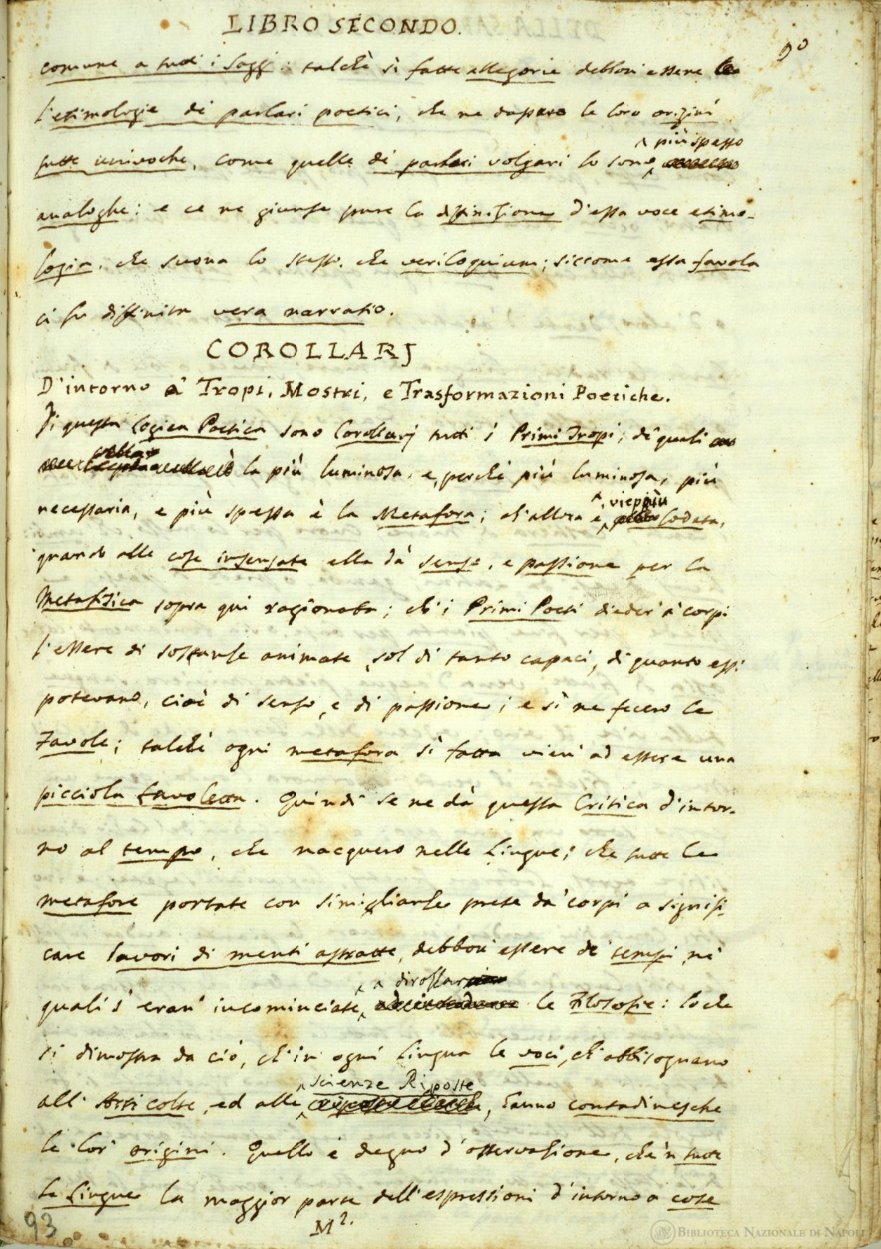 LIBRO SECONDO.
9º
comune a tutti i saggi: talchè sì fatte allegorie debbon essere
l'etimologie de' parlari poetici, che ne dassero le loro origini
più spesso
tutte univoche, come quelle de' parlari volgari lo sono
analoghe: e ce ne giunse pure la diffinizione d'essa voce etimo-
logia, che suona lo stesso, che veriloquium; siccome essa favola
ci fu diffinita vera narratio.
COROLLARJ
D'intorno a' Tropi, Mostri, e Trasformazioni Poetiche.
Di questa Logica Poetica sono Corollarj tutti i Primi Tropi, de' quali
è la più luminosa, e, perchè più luminosa, più
vieppiù
necessaria, e più spessa è la Metafora; ch'allora è lodata,
quando alle cose insensate ella dà senso, e passione per la
Metafisica sopra qui ragionata; ch'i Primi Poeti dieder' a' corpi
l'essere di sostanze animate, sol di tanto capaci, di quanto essi
potevano, cioè di senso, e di passione; e sì ne fecero le
Favole; talchè ogni metafora sì fatta vien' ad essere una
picciola favoletta. Quindi se ne dà questa Critica d'intor-
no al tempo, che nacquero nelle Lingue; che tutte le
metafore portate con simiglianze prese da' corpi a signifi-
care lavori di menti astratte, debbon' essere de' tempi, ne'
a dirozzar
quali s' eran' incominciate, le Filosofie: lo che
si dimostra da ciò, ch'in ogni Lingua le voci, ch'abbisognano
scienze Riposte
all' Arti colte, ed alle, hanno contadinesche
le lor' origini. Quello è degno d'osservazione, che 'n tutte
le Lingue la maggior parte dell'espressioni d'intorno a cose
93
M².
BIBLIOTECA NAZIONALE DI NAPOLI